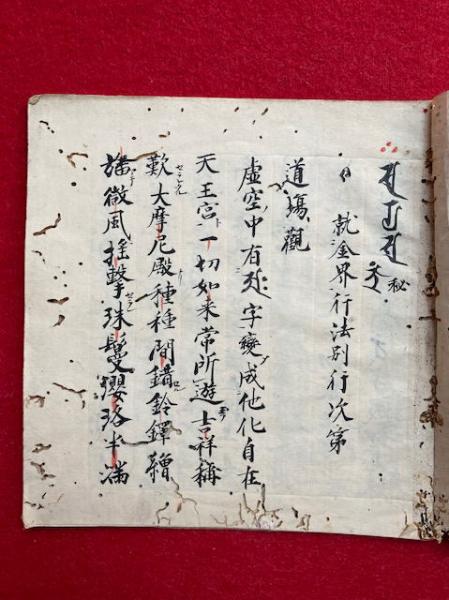 秘
就界行法別行次第
道場觀
虚空中有字變成他化自在
天王宮一切如来常所遊吉祥稱
歎大摩尼殿種種間錯鈴鐸繒
旛微風揺擊珠鬘瓔珞半満